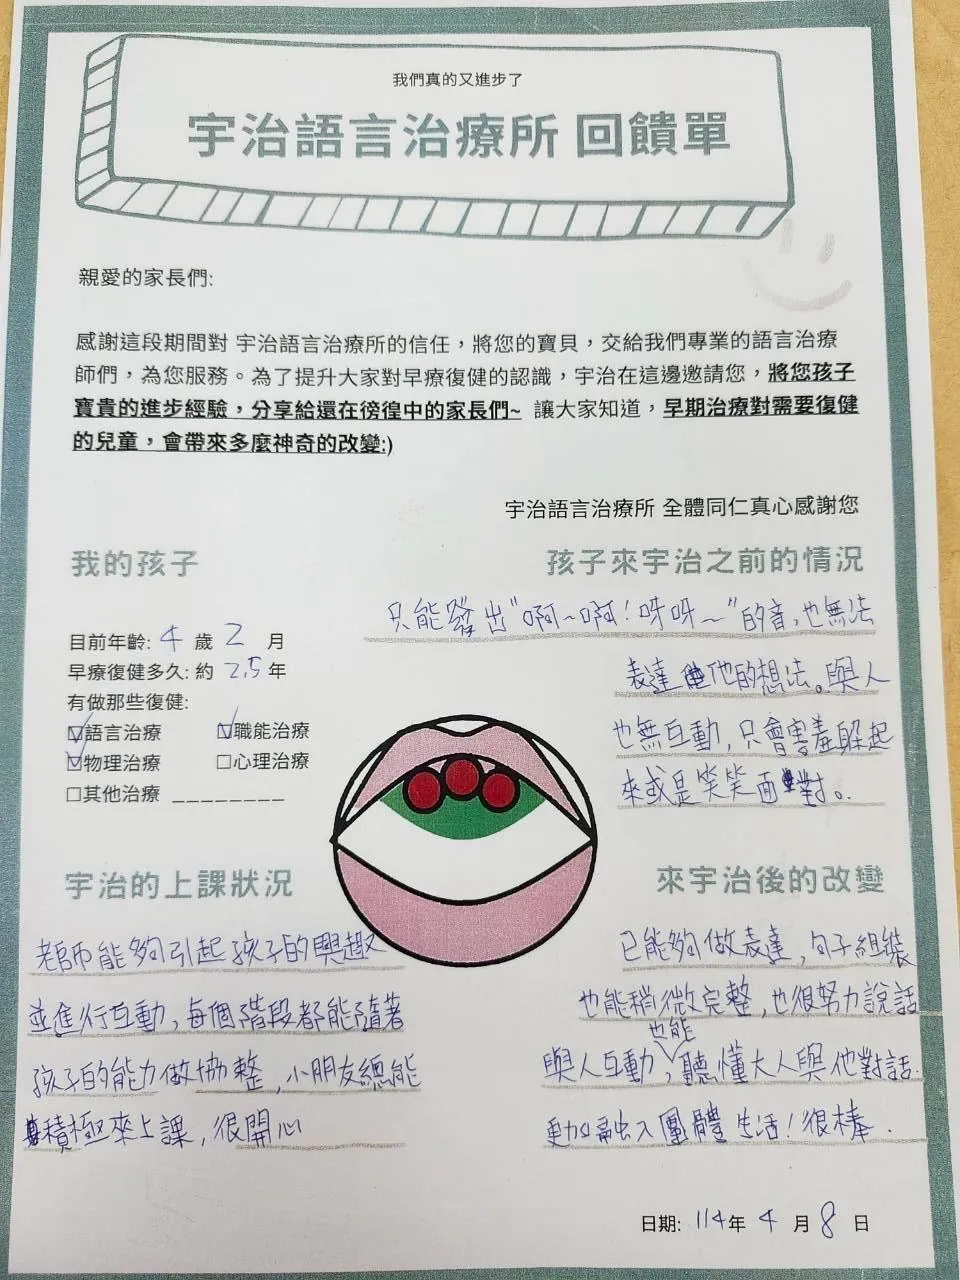 我們真的又進步了
宇治語言治療所 回饋單
親愛的家長們:
感謝這段期間對 宇治語言治療所的信任，將您的寶貝，交給我們專業的語言治療
師們，為您服務。為了提升大家對早療復健的認識，宇治在這邊邀請您，將您孩子
寶貴的進步經驗，分享給還在徬徨中的家長們~ 讓大家知道，早期治療對需要復健
的兒童，會帶來多麼神奇的改變:)
宇治語言治療所 全體同仁真心感謝您
我的孩子
目前年齡: 4 歲 2 月
早療復健多久: 約 2.5 年
有做那些復健:
☑語言治療 ☑職能治療
☑物理治療 ☐心理治療
☐其他治療 _________
孩子來宇治之前的情況
只能發出"啊~啊!呀呀~"的音,也無法
表達他的想法。與人
也無互動,只會害羞躲起
來或是笑笑面對。
宇治的上課狀況
老師能夠引起孩子的興趣
並進行互動,每個階段都能隨著
孩子的能力做協整,小朋友總能
積極來上課,很開心
來宇治後的改變
已能夠做表達,句子組裝
也能稍微完整,也很努力說話
與人互動,也能聽懂大人與他對話.
融入團體生活!很棒.
日期: 114年 4 月 8 日